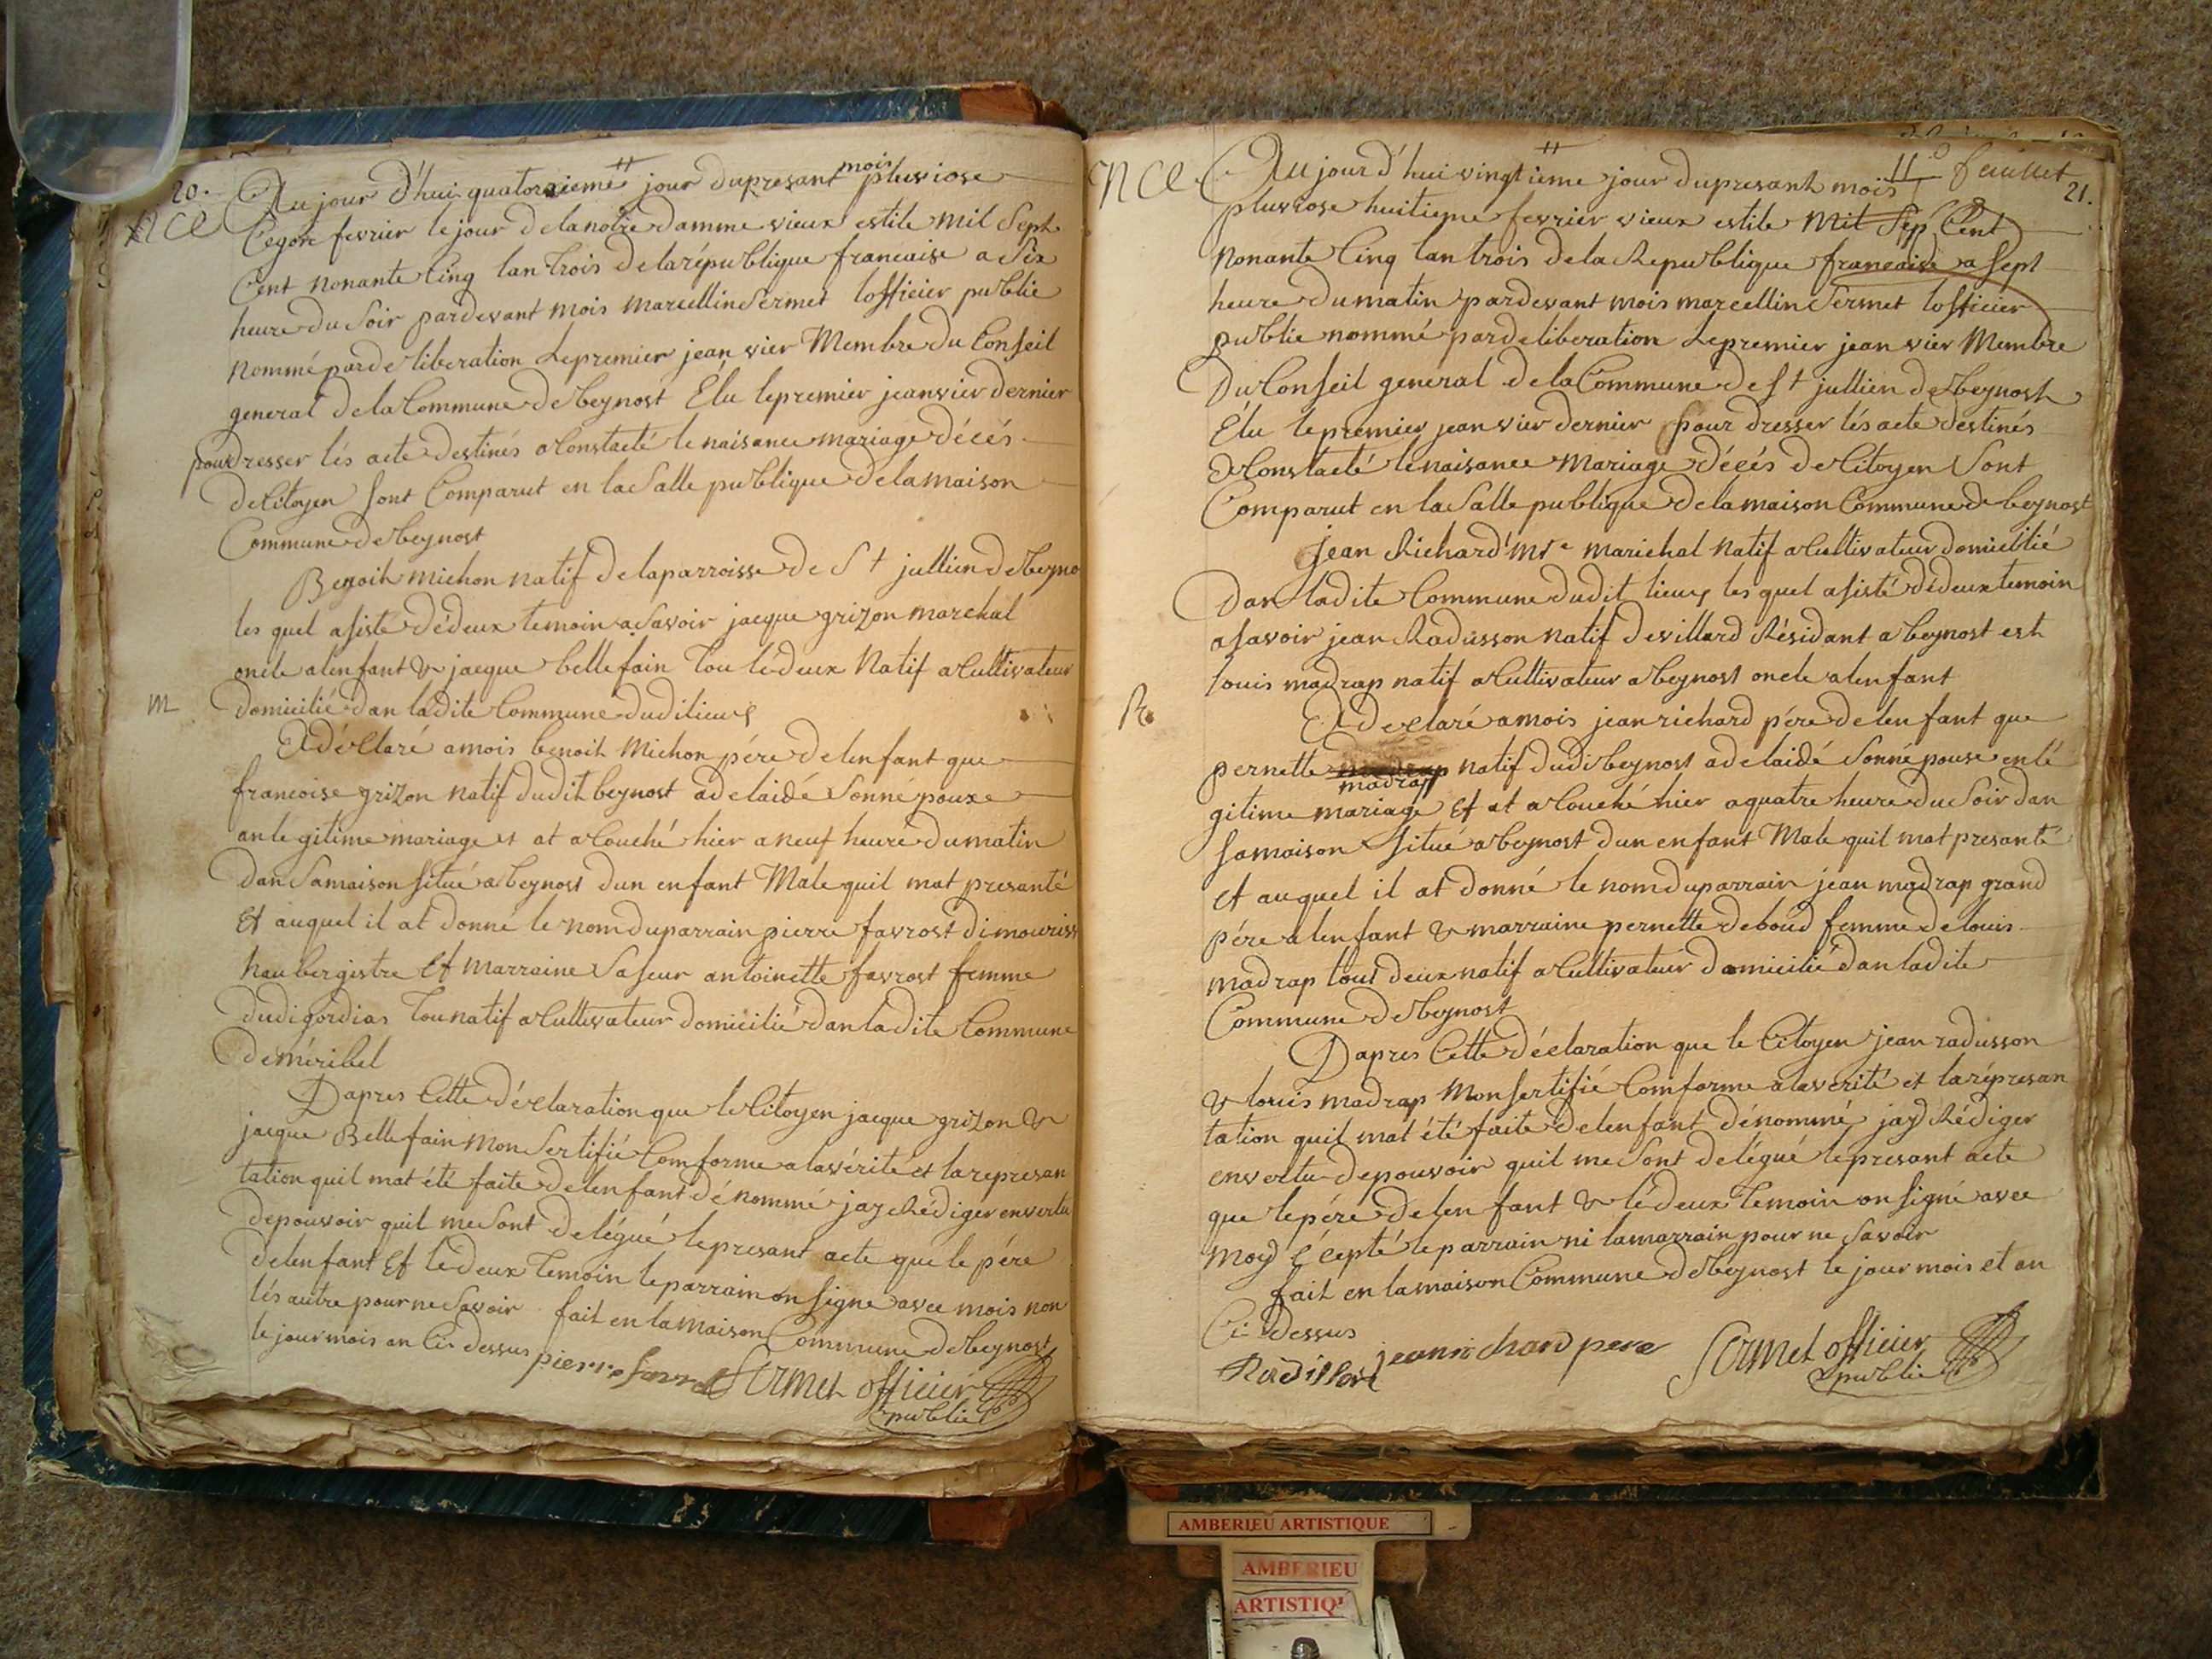 20.
NCE
Au jour d'hui quatorzieme jour du presant mois pluviose
fevrier le jour de la notre damme vieux estile mil Sept
Cent nonante Cinq lan trois de la république francaise a Six
heure du Soir par devant mois marcellin Sermet lofficier public
nommé par deliberation Le premier jean vier Membre du Conseil
general de la Commune de beynost Élu le premier jeanvier dernier
pour dresser lés acte destinés a Constacté le naisance mariage décés
de Citoyen Sont Comparut en la Salle publique de la maison
Commune de beynost
Benoit michon natif de la parroisse de St jullien de beyno
les quel asisté dédeux temoin a Savoir jacque grizon marchal
oncle alenfant & jacque bellefain Tou lédeux Natif a Cultivateur
m domicilié dan ladite Commune dudi lieu
A déclaré a mois benoit Michon pére de lenfant que
francoise grizon natif dudit beynost adelaidé Sonné pouxe
an le gitime mariage et at a Couché hier a neuf heure du matin
dan Sa maison situé a beynost dun enfant Male quil mat presanté
Et auquel il at donné le nom du parrain pierre favrost dimouriss
hau bergistre Et marraine Sa seur antoinette favrost femme
dudi gordias Tou natif a Cultivateur domicilié dan ladite Commune
de méribel
Dapres Cette déclaration que le Citoyen jacque grizon &
jacque Bellefain mon Sertifié Comforme a la vérité et la represan
tation quil mat été faite de lenfant dénommé jay Rédiger en vertu
de pouvoir quil me Sont delégué le presant acte que le pére
de lenfant Et lé deux Temoin le parrain on signe avec mois non
lés autre pour ne Savoir fait en la maison Commune de beynost
le jour mois an Ci dessus pierre favro Sermet officier
public
NCE
11e feuillet
21.
Au jour d'hui vingtieme jour du presant mois
pluviose huitieme fevrier vieux estile Mil Sep Cent
Nonante Cinq lan trois de la Republique francaise a sept
heure du matin par devant mois marcellin Sermet lofficier
public nommé par deliberation Le premier jean vier Membre
du Conseil general de la Commune de St jullien de beynost
Élu le premier jean vier dernier pour dresser lés acte destinés
a Constacté le naisance Mariage décés de Citoyen Sont
Comparut en la Salle publique de la maison Commune de beynost
Jean Richard Mre marichal natif a Cultivateur domicilié
dan ladite Commune dudit lieu les quel asisté dédeux temoin
a savoir jean Radusson natif de villard Résidant a beynost est
louis madrap natif a Cultivateur a beynost oncle alenfant
R. A declaré a mois jean richard pére de lenfant que
pernette madrap natif dudi beynost adelaidé Sonné pouse en lé
gitime mariage Et at a Couché hier a quatre heure du Soir dan
sa maison situé a beynost dun enfant Male quil mat presanté
Et au quel il at donné le nom du parrain jean madrap grand
pére a lenfant & marraine pernette deboud femme de louis
madrap tout deux natif a Cultivateur domicilié dan ladite
Commune de beynost
Dapres Cette déclaration que le Citoyen jean radusson
& louis madrap Mon Sertifié Comforme a la verité et la répresan
tation quil mat été faite de lenfant dénommé jay Rédiger
en vertu de pouvoir quil me Sont delégué le presant acte
que le pére de len fant & lé deux Temoin on signé avec
moy Écepté le parrain ni la marrain pour ne Savoir
fait en la maison Commune de beynost le jour mois et an
Ci dessus
jean richard pere Sermet officier
public
AMBERIEU ARTISTIQUE
AMBERIEU
ARTISTIQ